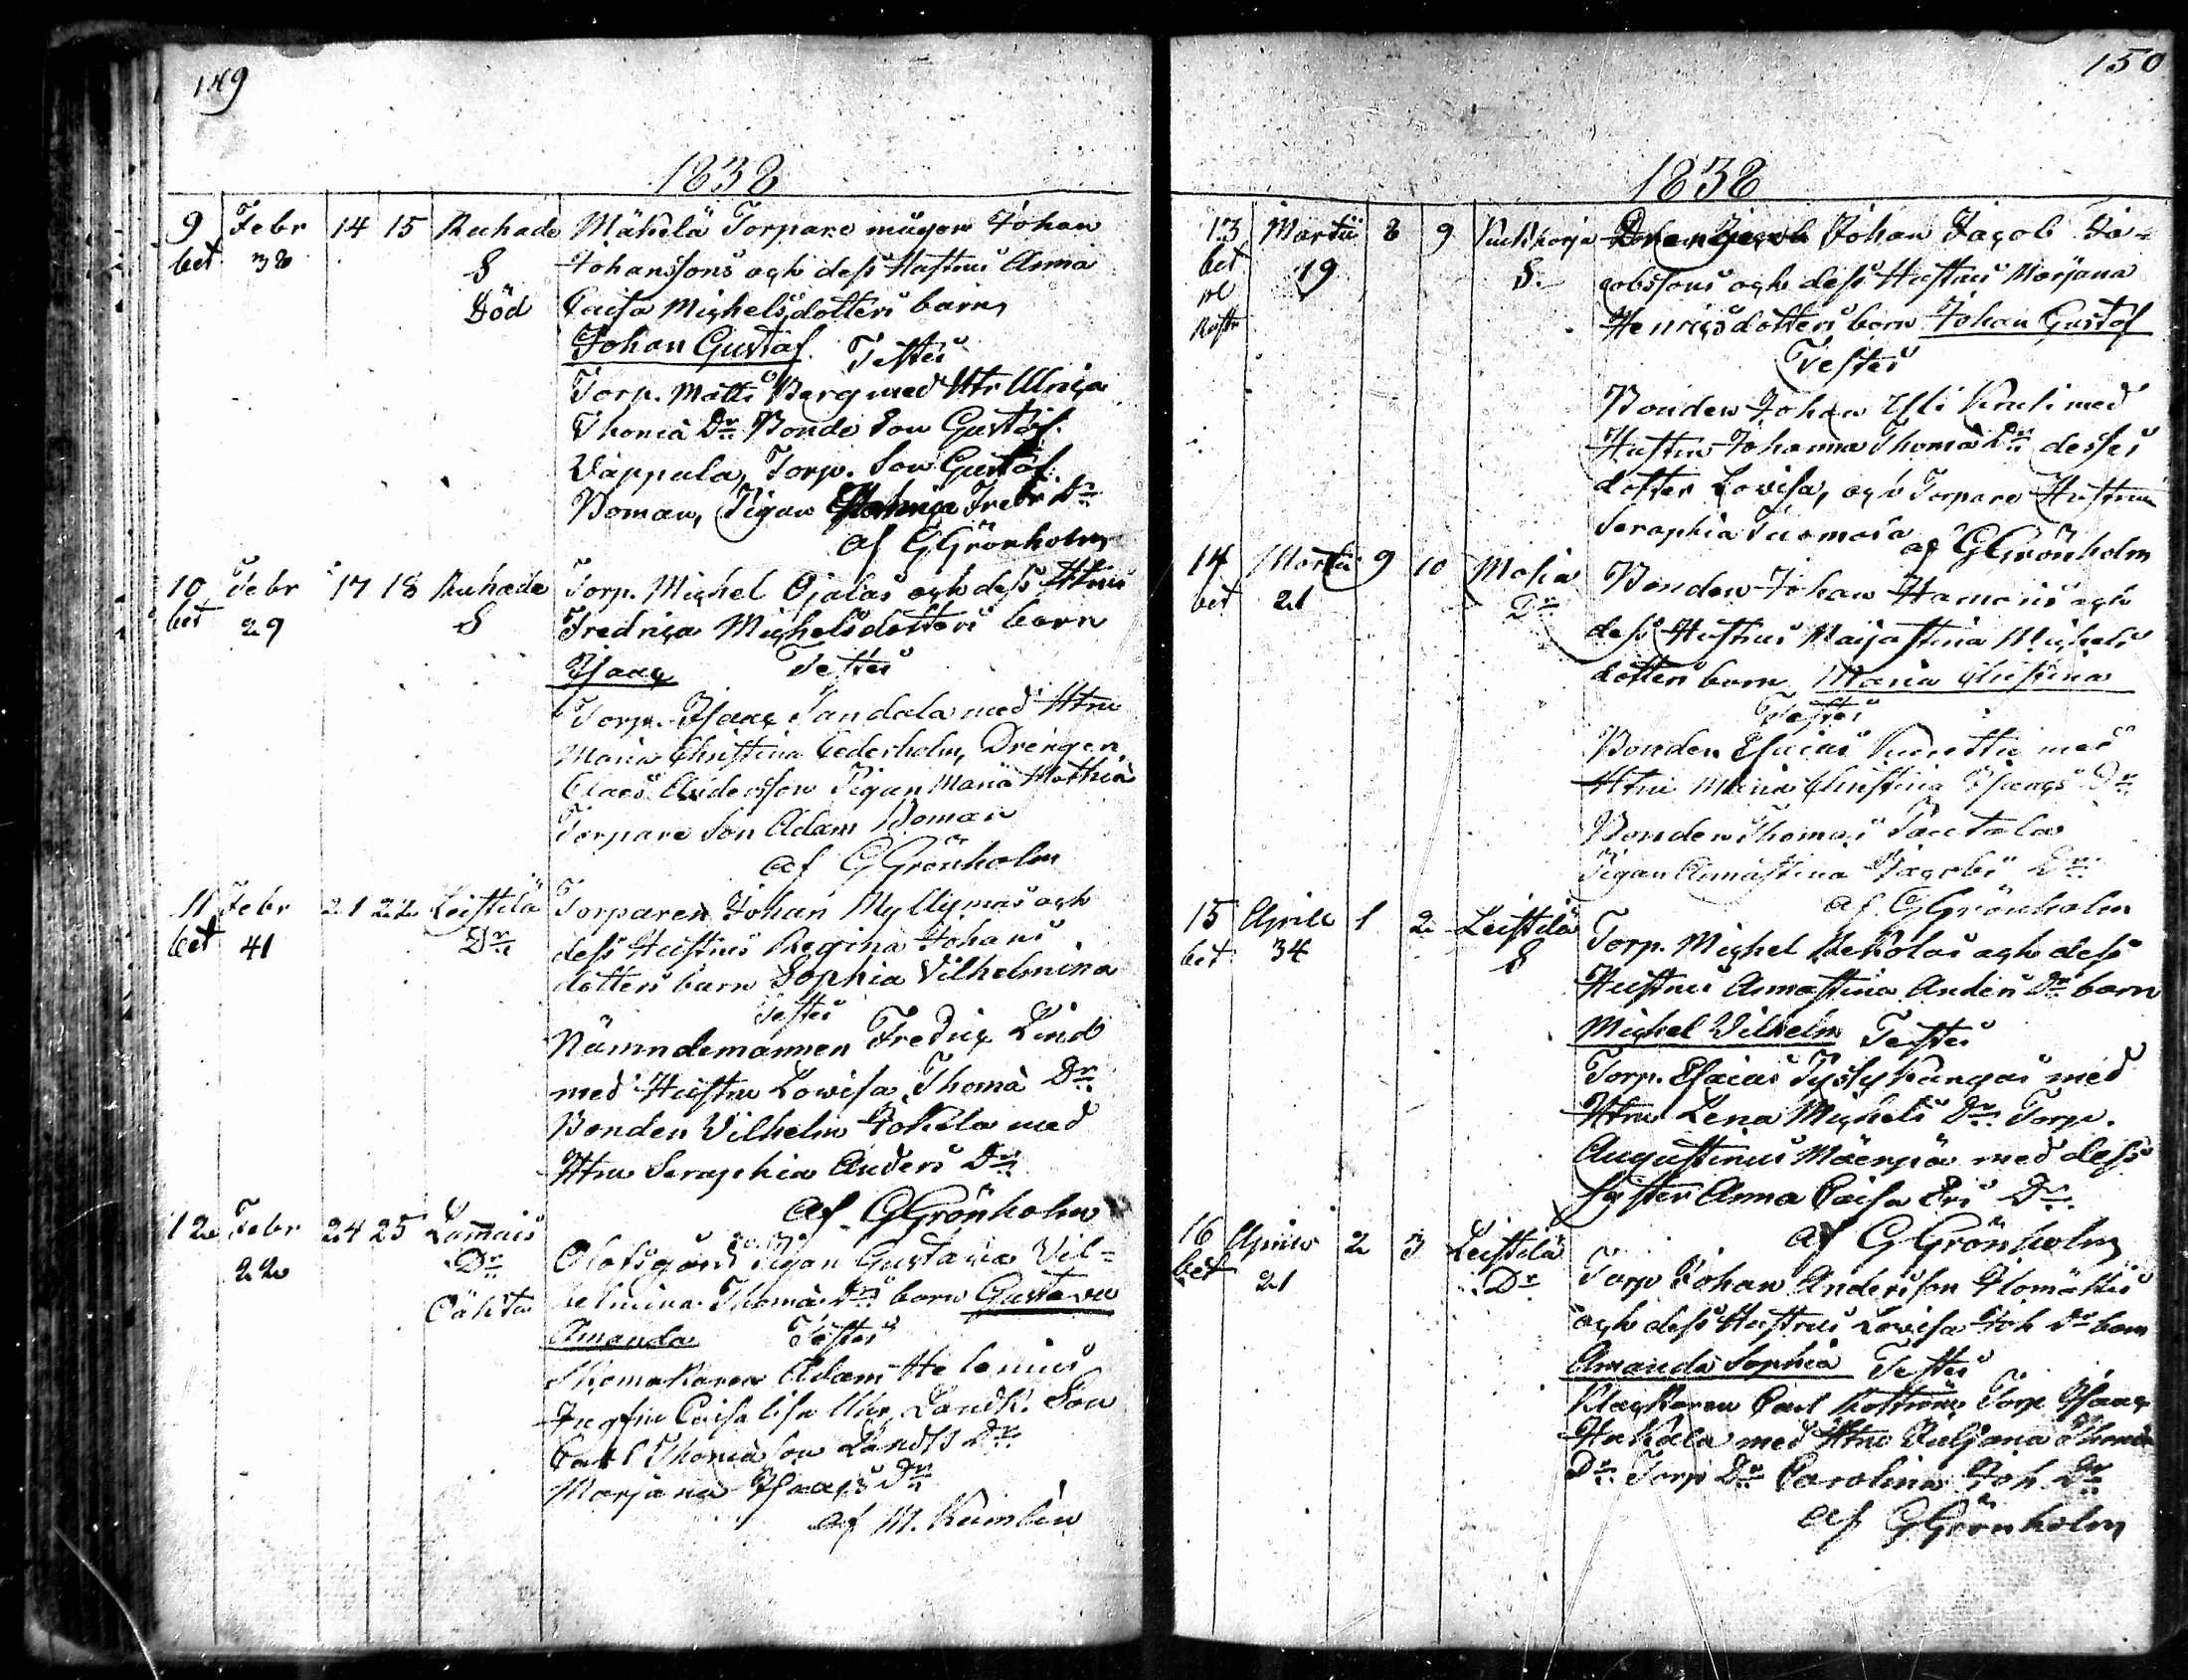 149
1838
9 Febr 14 15 Ruhade Mähelä Torpare mågen Johan
bet 38 S Johanssons och dess Hustrus Anna
Död Caisa Michelsdotters barn
Johan Gustaf Testes
Torp. Matts Berg med Htr Ulrica
Thomä Dr. Bonde Son Gustaf
Vappula, Torp. Son Gustaf
Boman, Pigan Fredr Dr.
af GGrönholm
10 Febr 17 18 Ruhade Torp. Michel Ojalas och dess Htrus
bet 29 S Fredrica Michelsdotters barn
Isaac Testes
Torp. Isaac Sandala med Htru
Maria Christina Cederholm, Drengen
Claes Andersson Pigan Maria Mathiä
Torpare Son Adam Boman
af GGrönholm
11 Febr 21 22 Leistilä Torparen Johan Myllymäs och
bet 41 Dr. dess Hustrus Regina Johans
dotters barn Sophia Vilhelmina
Testes
Nämndemannen Fredric Lind
med Hustru Lovisa Thomä Dr.
Bonden Vilhelm Jokela med
Htru Seraphia Anders Dr.
af GGrönholm
12 Febr 24 25 Lamais Olofsgård Pigan Gustava Vil=
22 Dr. helmina Thomä Drs barn Gustava
Oäkta Amanda Testes
Skomakaren Adam Helenius
Jugfru Caisa Lisa Landb. Son
Carl Thomä son Landb Dr.
Marjana Isaacs Dr.
af M. Kumlin
150
1838
13 Martii 8 9 Puckkorja Johan Jacob Ja=
bet 19 S. cobssons och dess Hustrus Marjana
Henricsdotters barn Johan Gustaf
Testes
Bonden Johan Yli Krali med
Hustru Johanna Thomä Dr. desses
dotter Lovisa, och Torpare Hustru
Seraphia Tuomola
af GGrönholm
14 Martii 9 10 Mahia Bonden Johan Hamaris och
bet 21 Dr. dess Hustrus Maijastina Michels
dotters barn Maria Christina
Testes
Bonden Esaias Kunttu med
Htru Maria Christina Isaacs Dr.
Bonden Thomas Pautala
Pigan Annastina Jacobs Dr.
af GGrönholm
15 Aprill 1 2 Leistilä Torp. Michel Rekolas och dess
bet 34 S Hustrus Annastina Anders Dr. barn
Michel Vilhelm Testes
Torp. Esaias Tystykangas med
Htru Lena Michels Dr. Torp.
Augustinus Mäenpä med dess
Syster Anna Caisa Ers Dr.
af GGrönholm
16 Aprill 2 3 Leistilä Torp Johan Andersson Ilomäkis
bet 21 Dr och dess Hustrus Lovisa Joh Dr barn
Amanda Sophia Testes
Klockaren Carl Torp Isaac
Hakala med Htru Juljana Thomä
Dr. Torp Dr. Carolina Joh Dr.
af GGrönholm